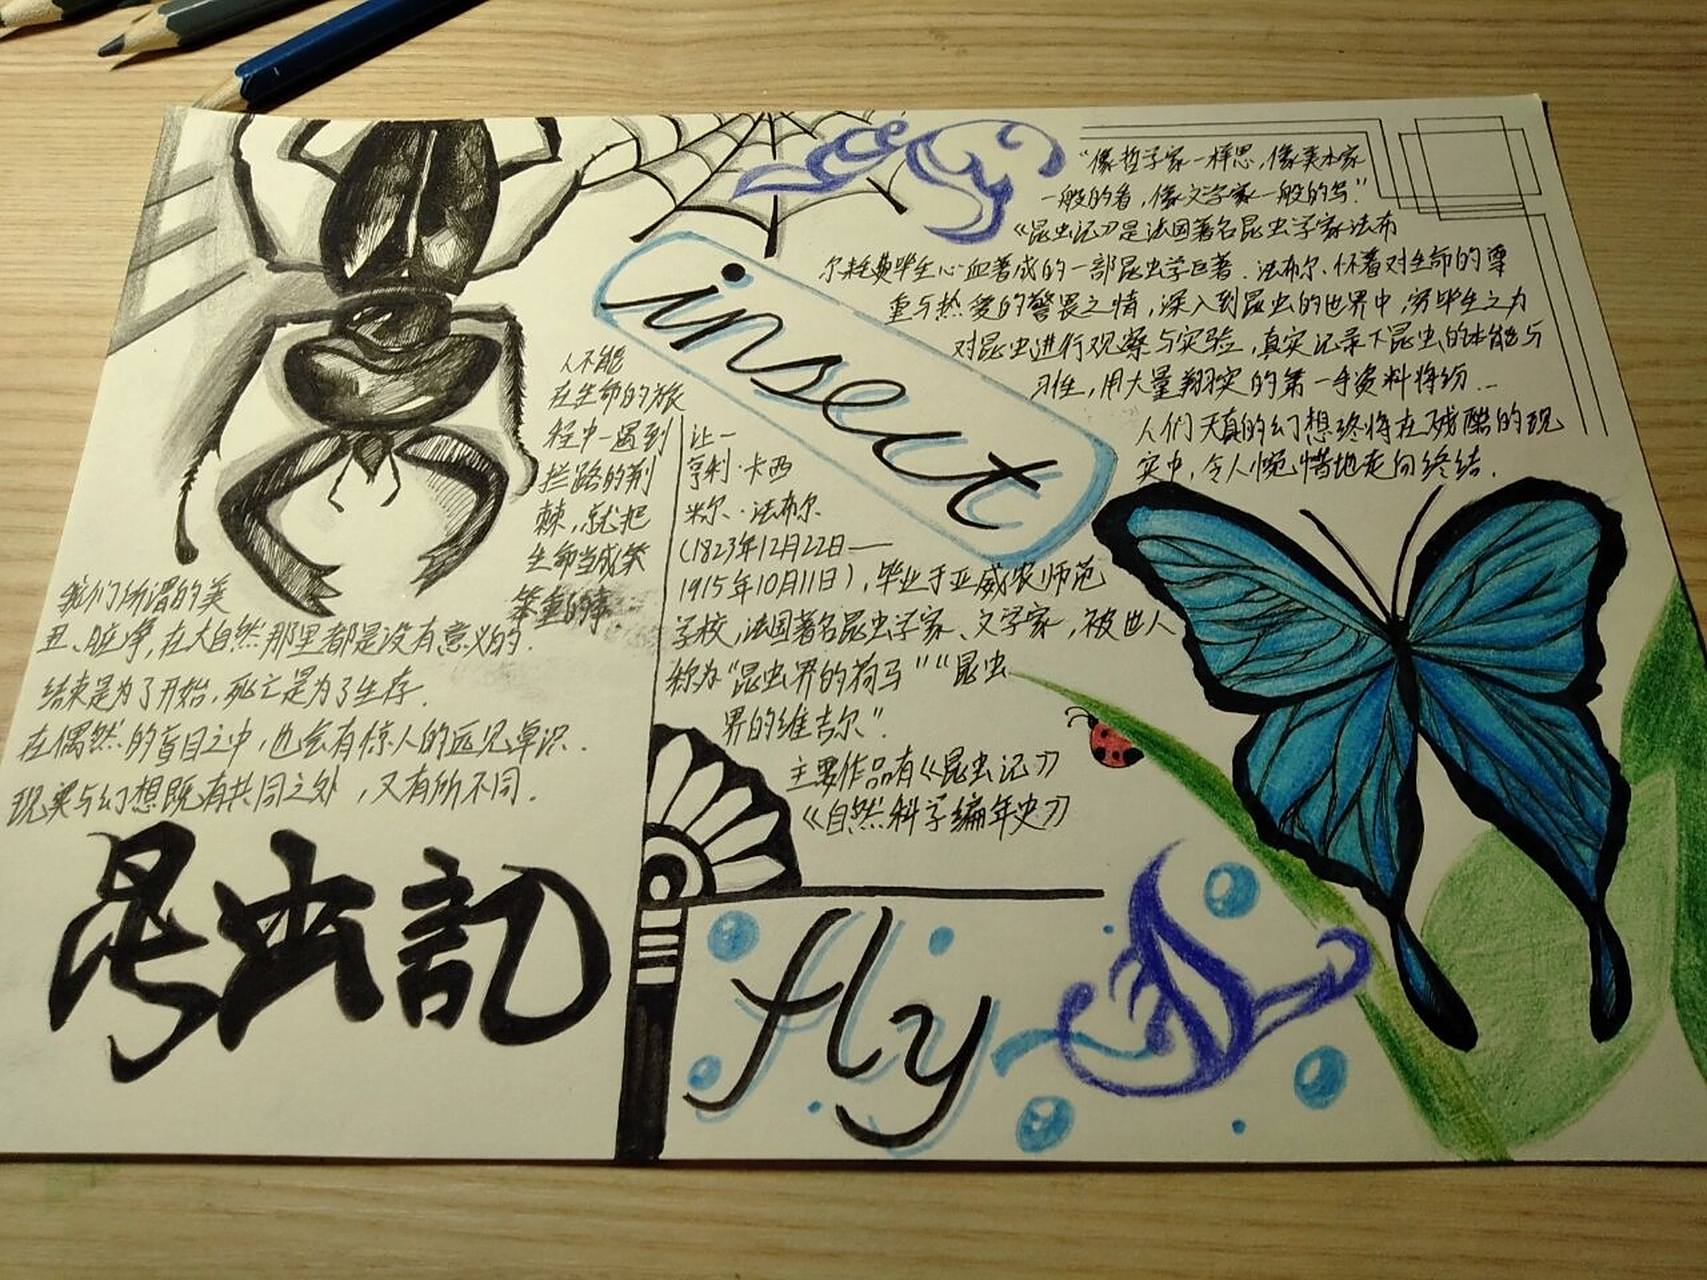 insect
"像哲学家一样思,像美术家
一般的看,像文学家一般的写."
《昆虫记》是法国著名昆虫学家法布
尔耗费毕生心血著成的一部昆虫学巨著.法布尔、怀着对生命的尊
重与热爱的警畏之情,深入到昆虫的世界中,穷毕生之力
对昆虫进行观察与实验,真实记录下昆虫的本能与
习性,用大量翔实的第一手资料将纷...
人们天真的幻想终将在残酷的现
实中,令人惋惜地走向终结.
人不能
在生命的旅
程中一遇到
拦路的荆
棘,就把
生命当成笨
笨重的事.
我们所谓的美
丑、脏净,在大自然那里都是没有意义的.
结束是为了开始,死亡是为了生存.
在偶然的盲目之中,也会有惊人的远见卓识.
现实与幻想既有共同之处,又有所不同.
昆虫記
让一
亨利·卡西
米尔·法布尔
(1823年12月22日——
1915年10月11日),毕业于亚威农师范
学校,法国著名昆虫学家、文学家,被世人
称为"昆虫界的荷马""昆虫
界的维吉尔".
主要作品有《昆虫记》
《自然科学编年史》
fly